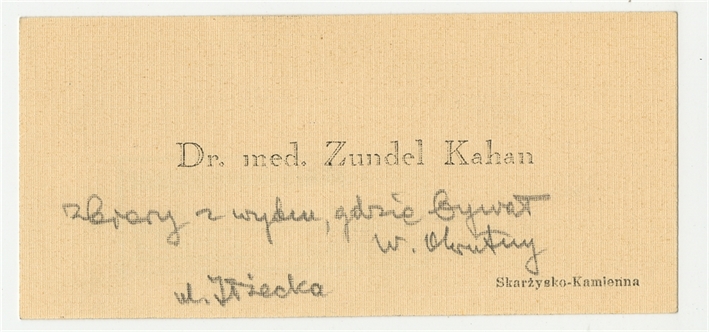 Dr. med. Zundel Kahan
z wydm, gdzie bywał
W. Okrutny
ul. Iłżecka
Skarżysko-Kamienna